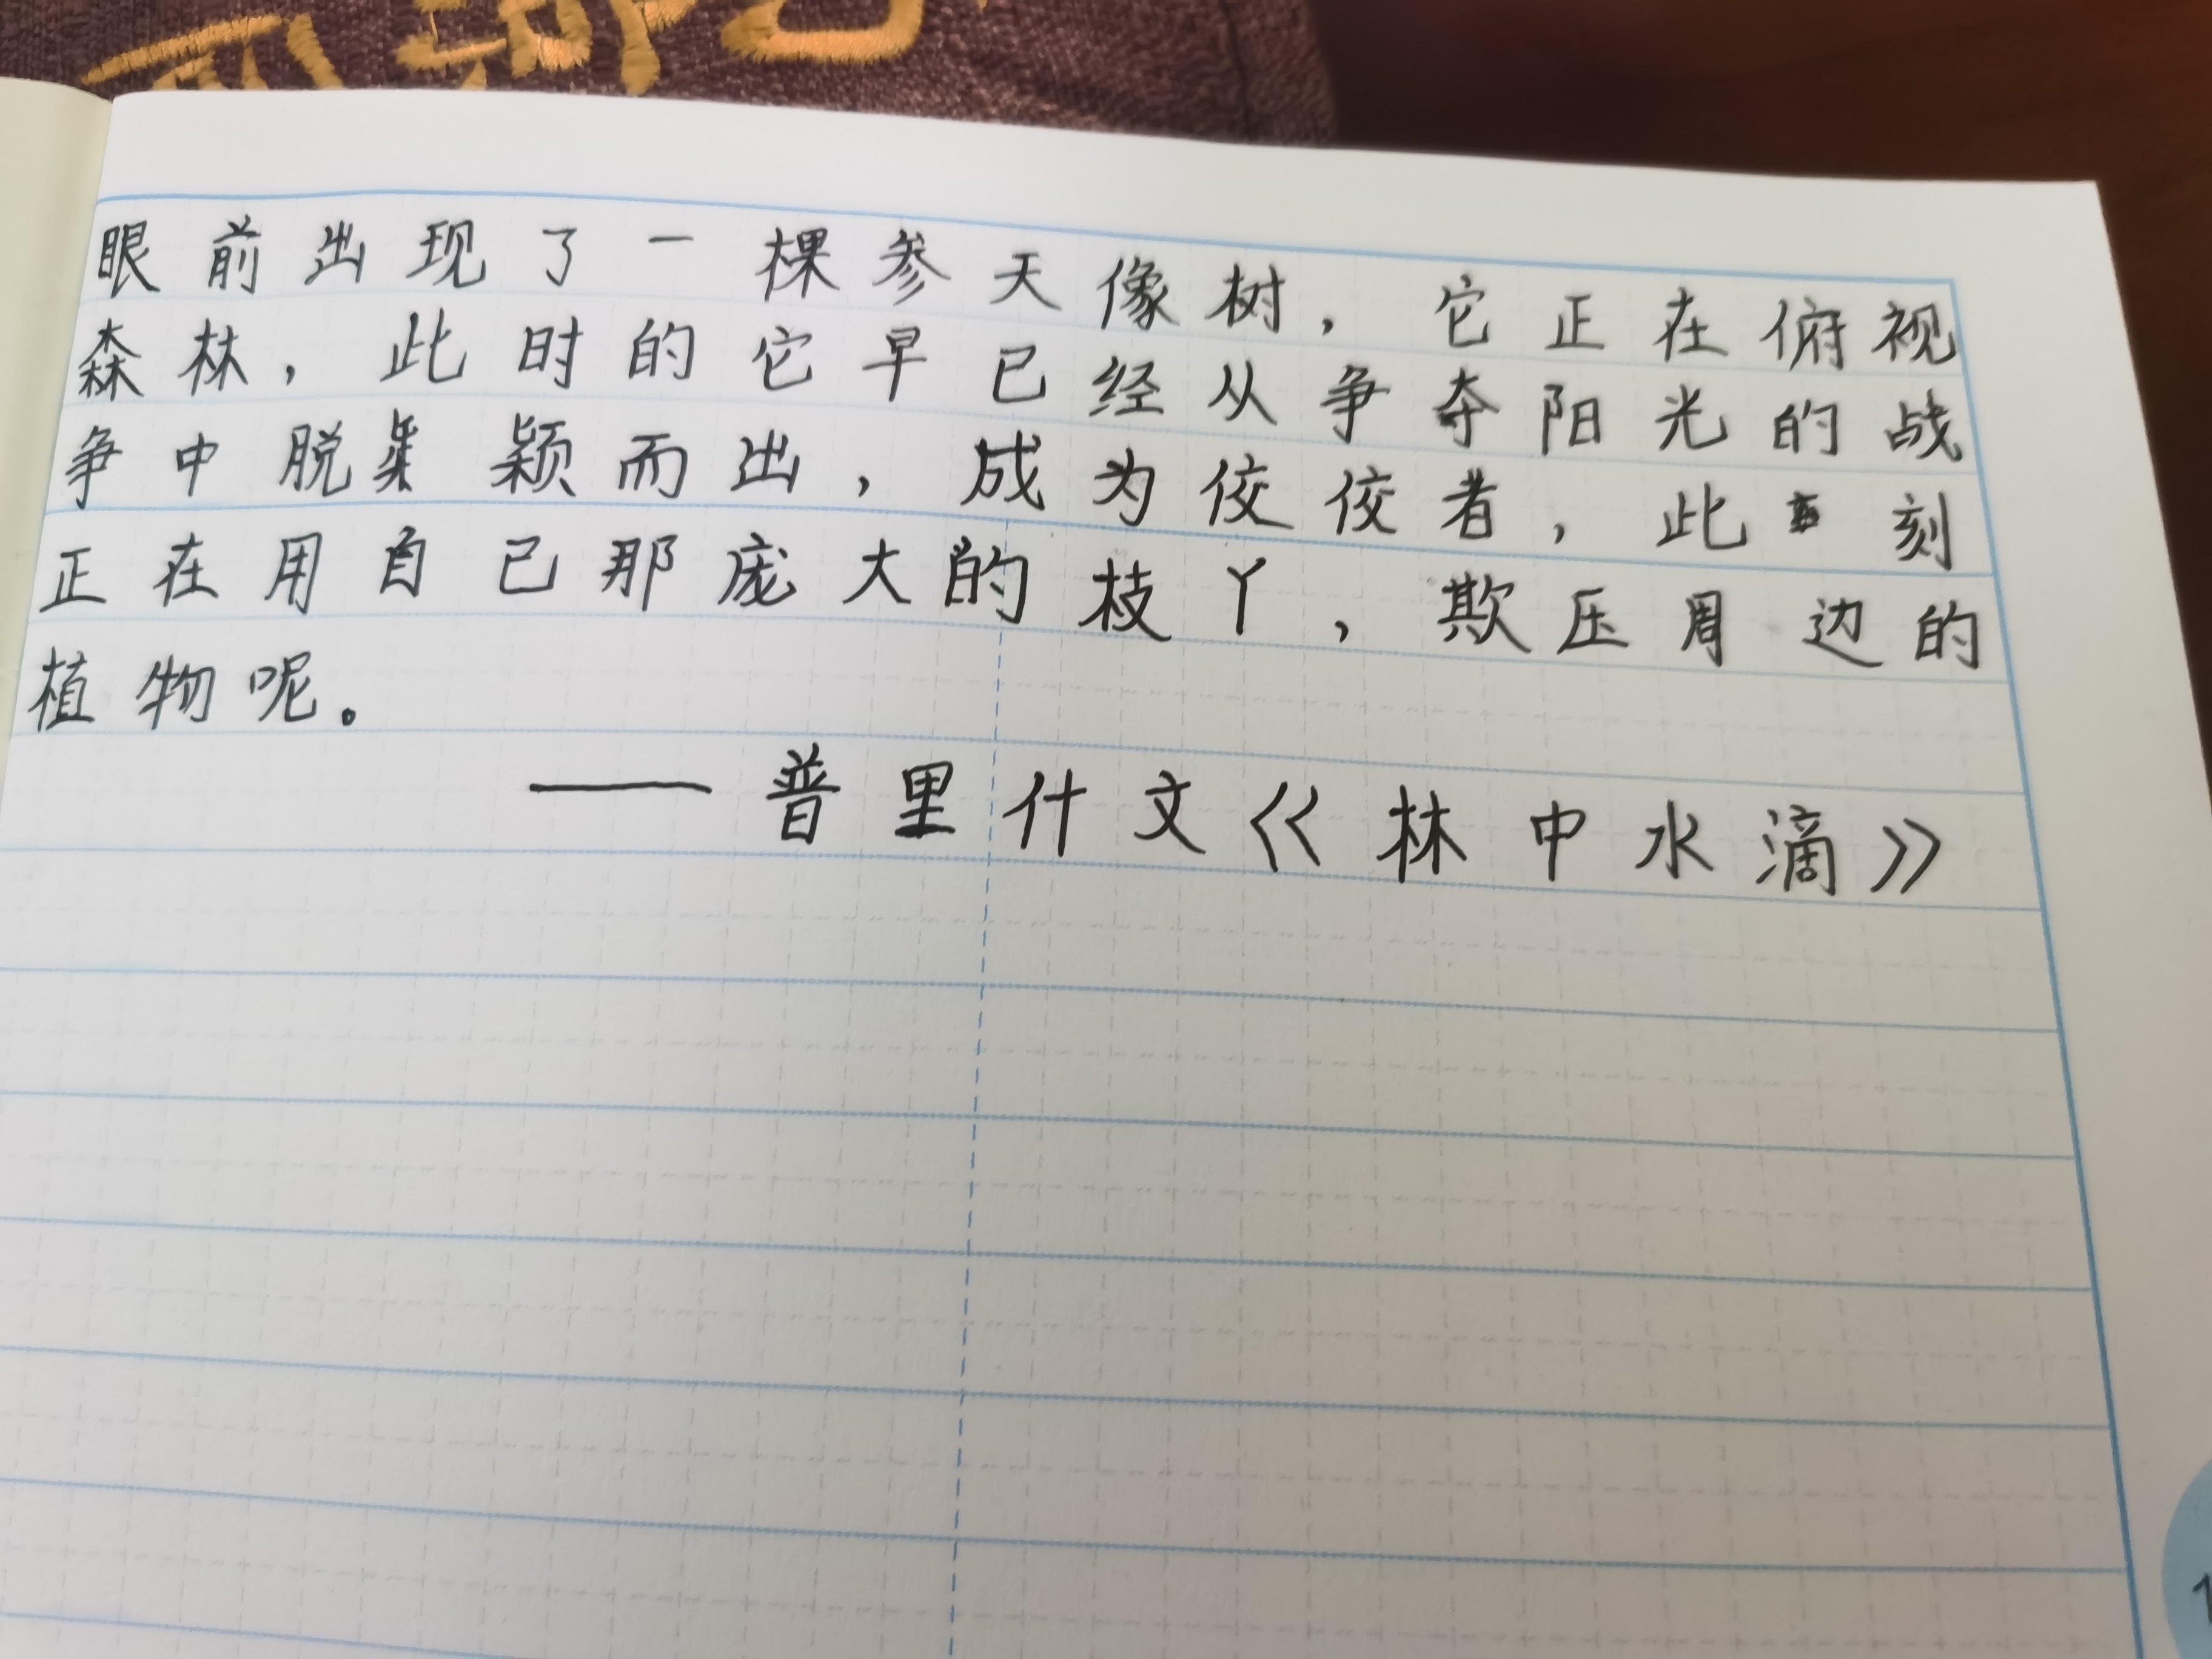 眼前出现了一棵参天像树，它正在俯视
森林，此时的它早已经从争夺阳光的战
争中脱颖而出，成为佼佼者，此刻
正在用自己那庞大的枝丫，欺压周边的
植物呢。
——普里什文《林中水滴》